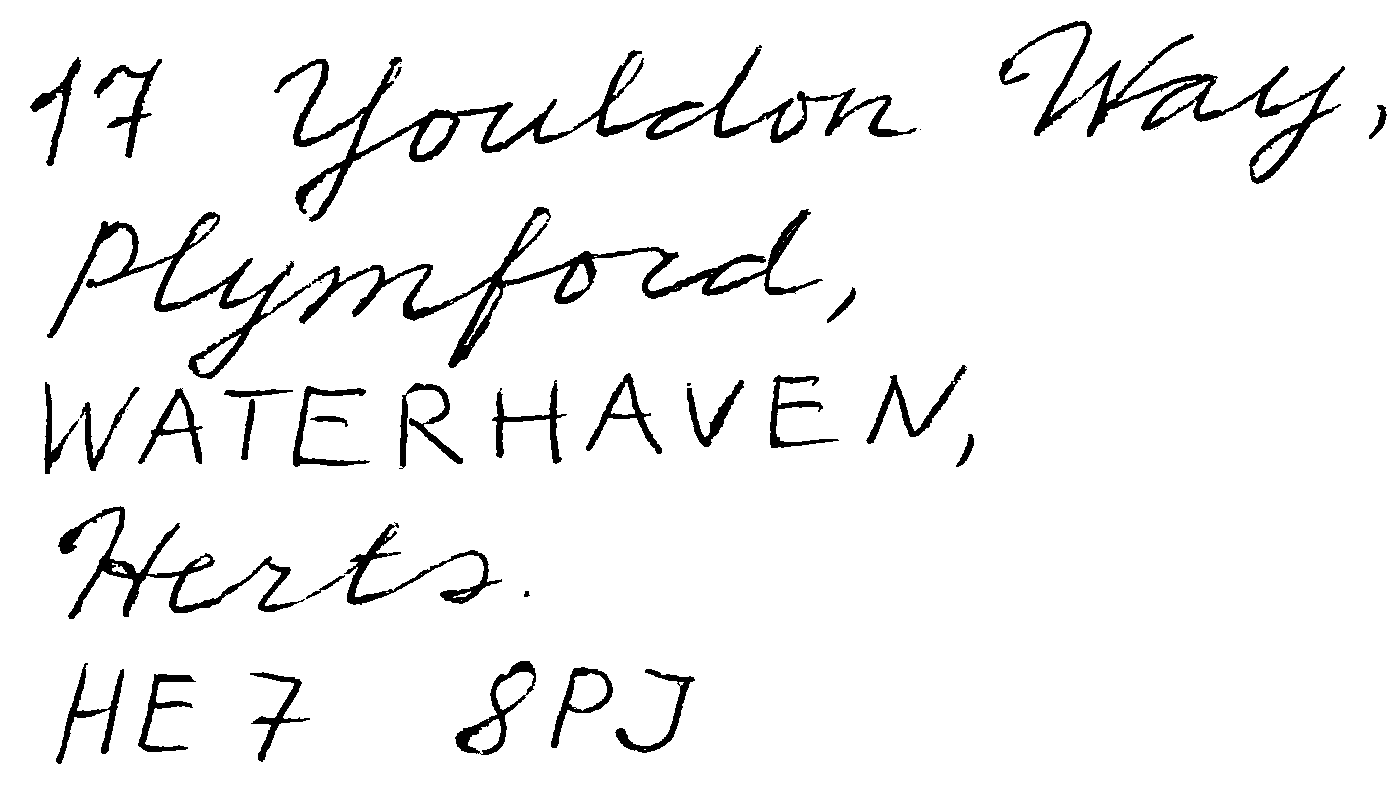 17 Youldon Way,
Plymford,
WATERHAVEN,
Herts.
HE7 8PJ